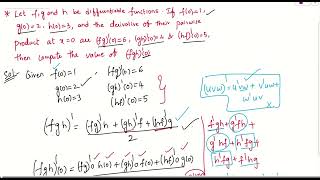 * Let f,g and h be differentiable functions. If f(0)=1,
g(0)=2, h(0)=3, and the derivative of their pairwise
product at x=0 are (fg)'(0)=6, (gh)'(0)=4 & (hf)'(0)=5,
then compute the value of (fgh)'(0).
Sol: Given f(0)=1
g(0)=2
h(0)=3
(fg)'(0)=6
(gh)'(0)=4
(hf)'(0)=5
(uvw)' = u'vw + v'uw +
w'uv
(fgh)' = (fg)'h + (gh)'f + (hf)'g
2
f'gh + g'fh +
g'hf + h'fg +
h'fg + f'hg
(fgh)'(0) = (fg)'(0) h(0) + (gh)'(0) f(0) + (hf)'(0) g(0)